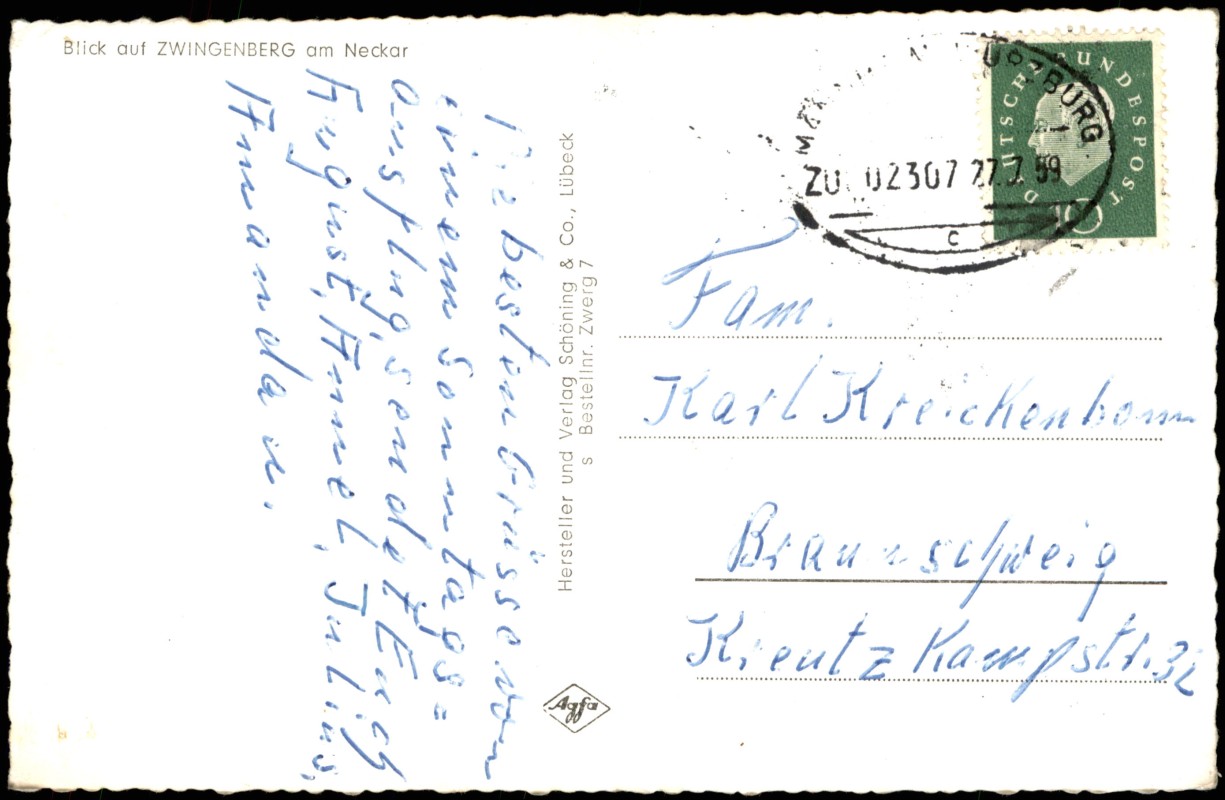 Blick auf ZWINGENBERG am Neckar
Die besten Grüsse von
einem Sonntags=
ausflug, sendet Euch
August, Annel, Julius,
Amanda u.
Hersteller und Verlag Schöning & Co., Lübeck
s Bestellnr. Zwerg 7
Agfa
DEUTSCHE BUNDESPOST
10
WÜRZBURG
ZUG 02307 27.7.59
c
Fam.
Karl Kreickenbom
Braunschweig
Kreutzkampstr. 32